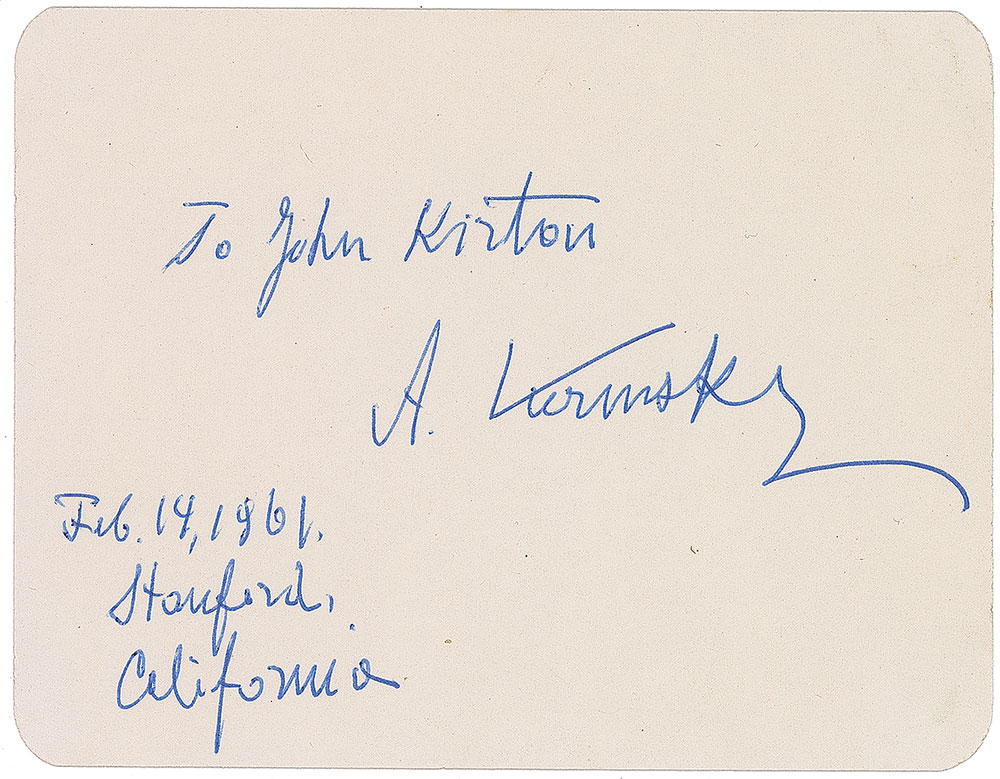 To John Kirton
A. Kerensky
Feb. 14, 1961.
Stanford,
California